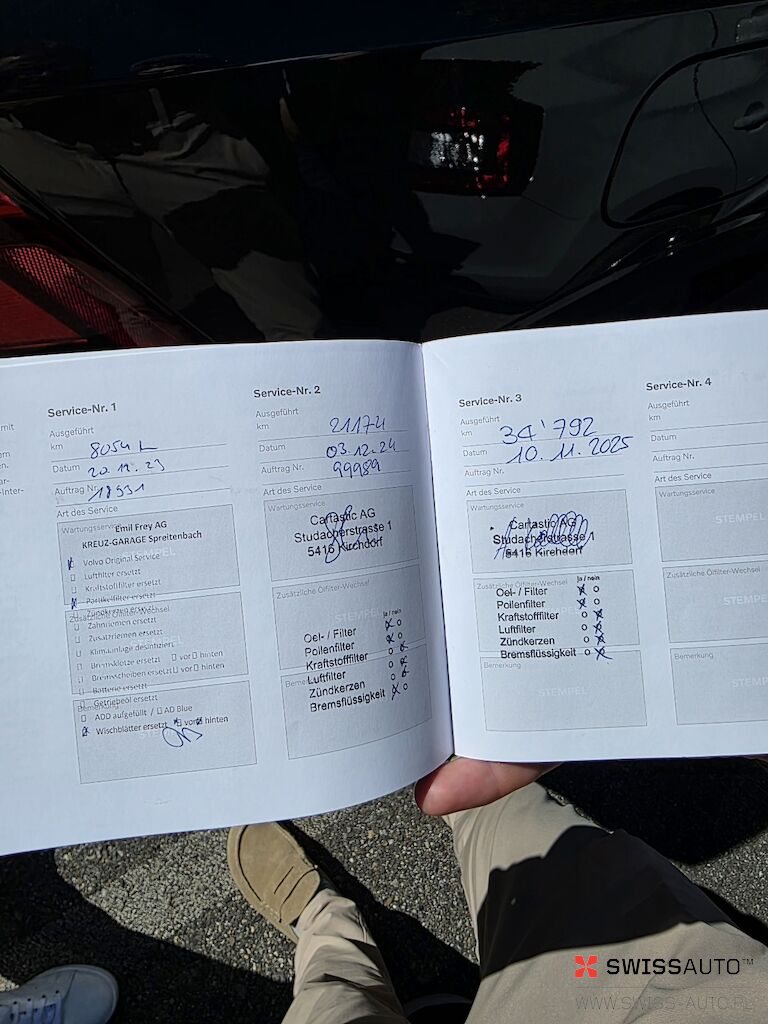 mit
Service-Nr. 1
Ausgeführt
km 8054 L
Datum 20.11.23
Auftrag Nr. 18931
Art des Service
Wartungsservice
Emil Frey AG
KREUZ-GARAGE Spreitenbach
Volvo Original Service
Luftfilter ersetzt
Kraftstoffilter ersetzt
Partikelfilter ersetzt
Zündkerzen ersetzt
Zusätzliche Ölfilter-Wechsel
Zahnriemen ersetzt
Zusatzriemen ersetzt
Klimaanlage desinfiziert
Bremsklötze ersetzt vor hinten
Bremsscheiben ersetzt vor hinten
Batterie ersetzt
Getriebeöl ersetzt
Bemerkung
ADD aufgefüllt / AD Blue
Wischblätter ersetzt vorne hinten
Service-Nr. 2
Ausgeführt
km 21174
Datum 03.12.24
Auftrag Nr. 99989
Art des Service
Wartungsservice
Cartastic AG
Studacherstrasse 1
5416 Kirchdorf
Zusätzliche Ölfilter-Wechsel
STEMPEL
ja / nein
Oel- / Filter
Pollenfilter
Kraftstofffilter
Luftfilter
Zündkerzen
Bremsflüssigkeit
Service-Nr. 3
Ausgeführt
km 34'792
Datum 10.11.2025
Auftrag Nr.
Art des Service
Wartungsservice
Cartastic AG
Studacherstrasse 1
5416 Kirchdorf
Zusätzliche Ölfilter-Wechsel
ja / nein
Oel- / Filter
Pollenfilter
Kraftstofffilter
Luftfilter
Zündkerzen
Bremsflüssigkeit
Bemerkung
STEMPEL
Service-Nr. 4
Ausgeführt
km
Datum
Auftrag Nr.
Art des Service
Wartungsservice
STEMPEL
Zusätzliche Ölfilter-Wechsel
STEMPEL
Bemerkung
STEMPEL
SWISSAUTO™
WWW.SWISS-AUTO.PL